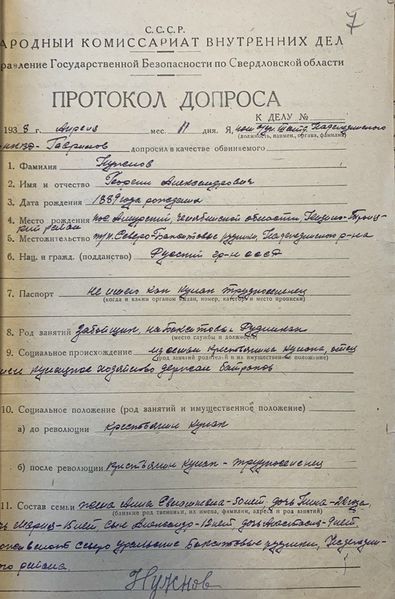 7
С. С. С. Р.
АРОДНЫЙ КОМИССАРИАТ ВНУТРЕННИХ ДЕЛ
равление Государственной Безопасности по Свердловской области
ПРОТОКОЛ ДОПРОСА
К ДЕЛУ №
193 8 г. апреля мес. 11 дня. Я,
(должность, наимен. органа, фамилия)
Гаврилов допросил в качестве обвиняемого
1. Фамилия
2. Имя и отчество Георгий Александрович
3. Дата рождения 1889 года рождения
4. Место рождения пос Амурский Челябинской области,
район
5. Местожительство Северо-Бокситовые рудники, р-на
6. Нац. и гражд. (подданство) Русский гр-н СССР
7. Паспорт не имел как кулак трудпоселенец
(когда и каким органом выдан, номер, категория и место прописки)
8. Род занятий забойщик на бокситовых рудниках
(место службы и должность)
9. Социальное происхождение из семьи крестьянина кулака, отец
(род занятий родителей и их имущественное положение)
имел кулацкое хозяйство держал батраков
10. Социальное положение (род занятий и имущественное положение)
а) до революции крестьянин кулак
б) после революции крестьянин кулак - трудпоселенец
11. Состав семьи жена Анна 50 лет, дочь Нина - 20 года,
(близкие родственники, их имена, фамилии, адреса и род занятий)
Мария - 15 лет сын Александр - 12 лет, дочь Анастасия 9 лет,
северо уральские бокситовые рудники,
района.
Нужнов